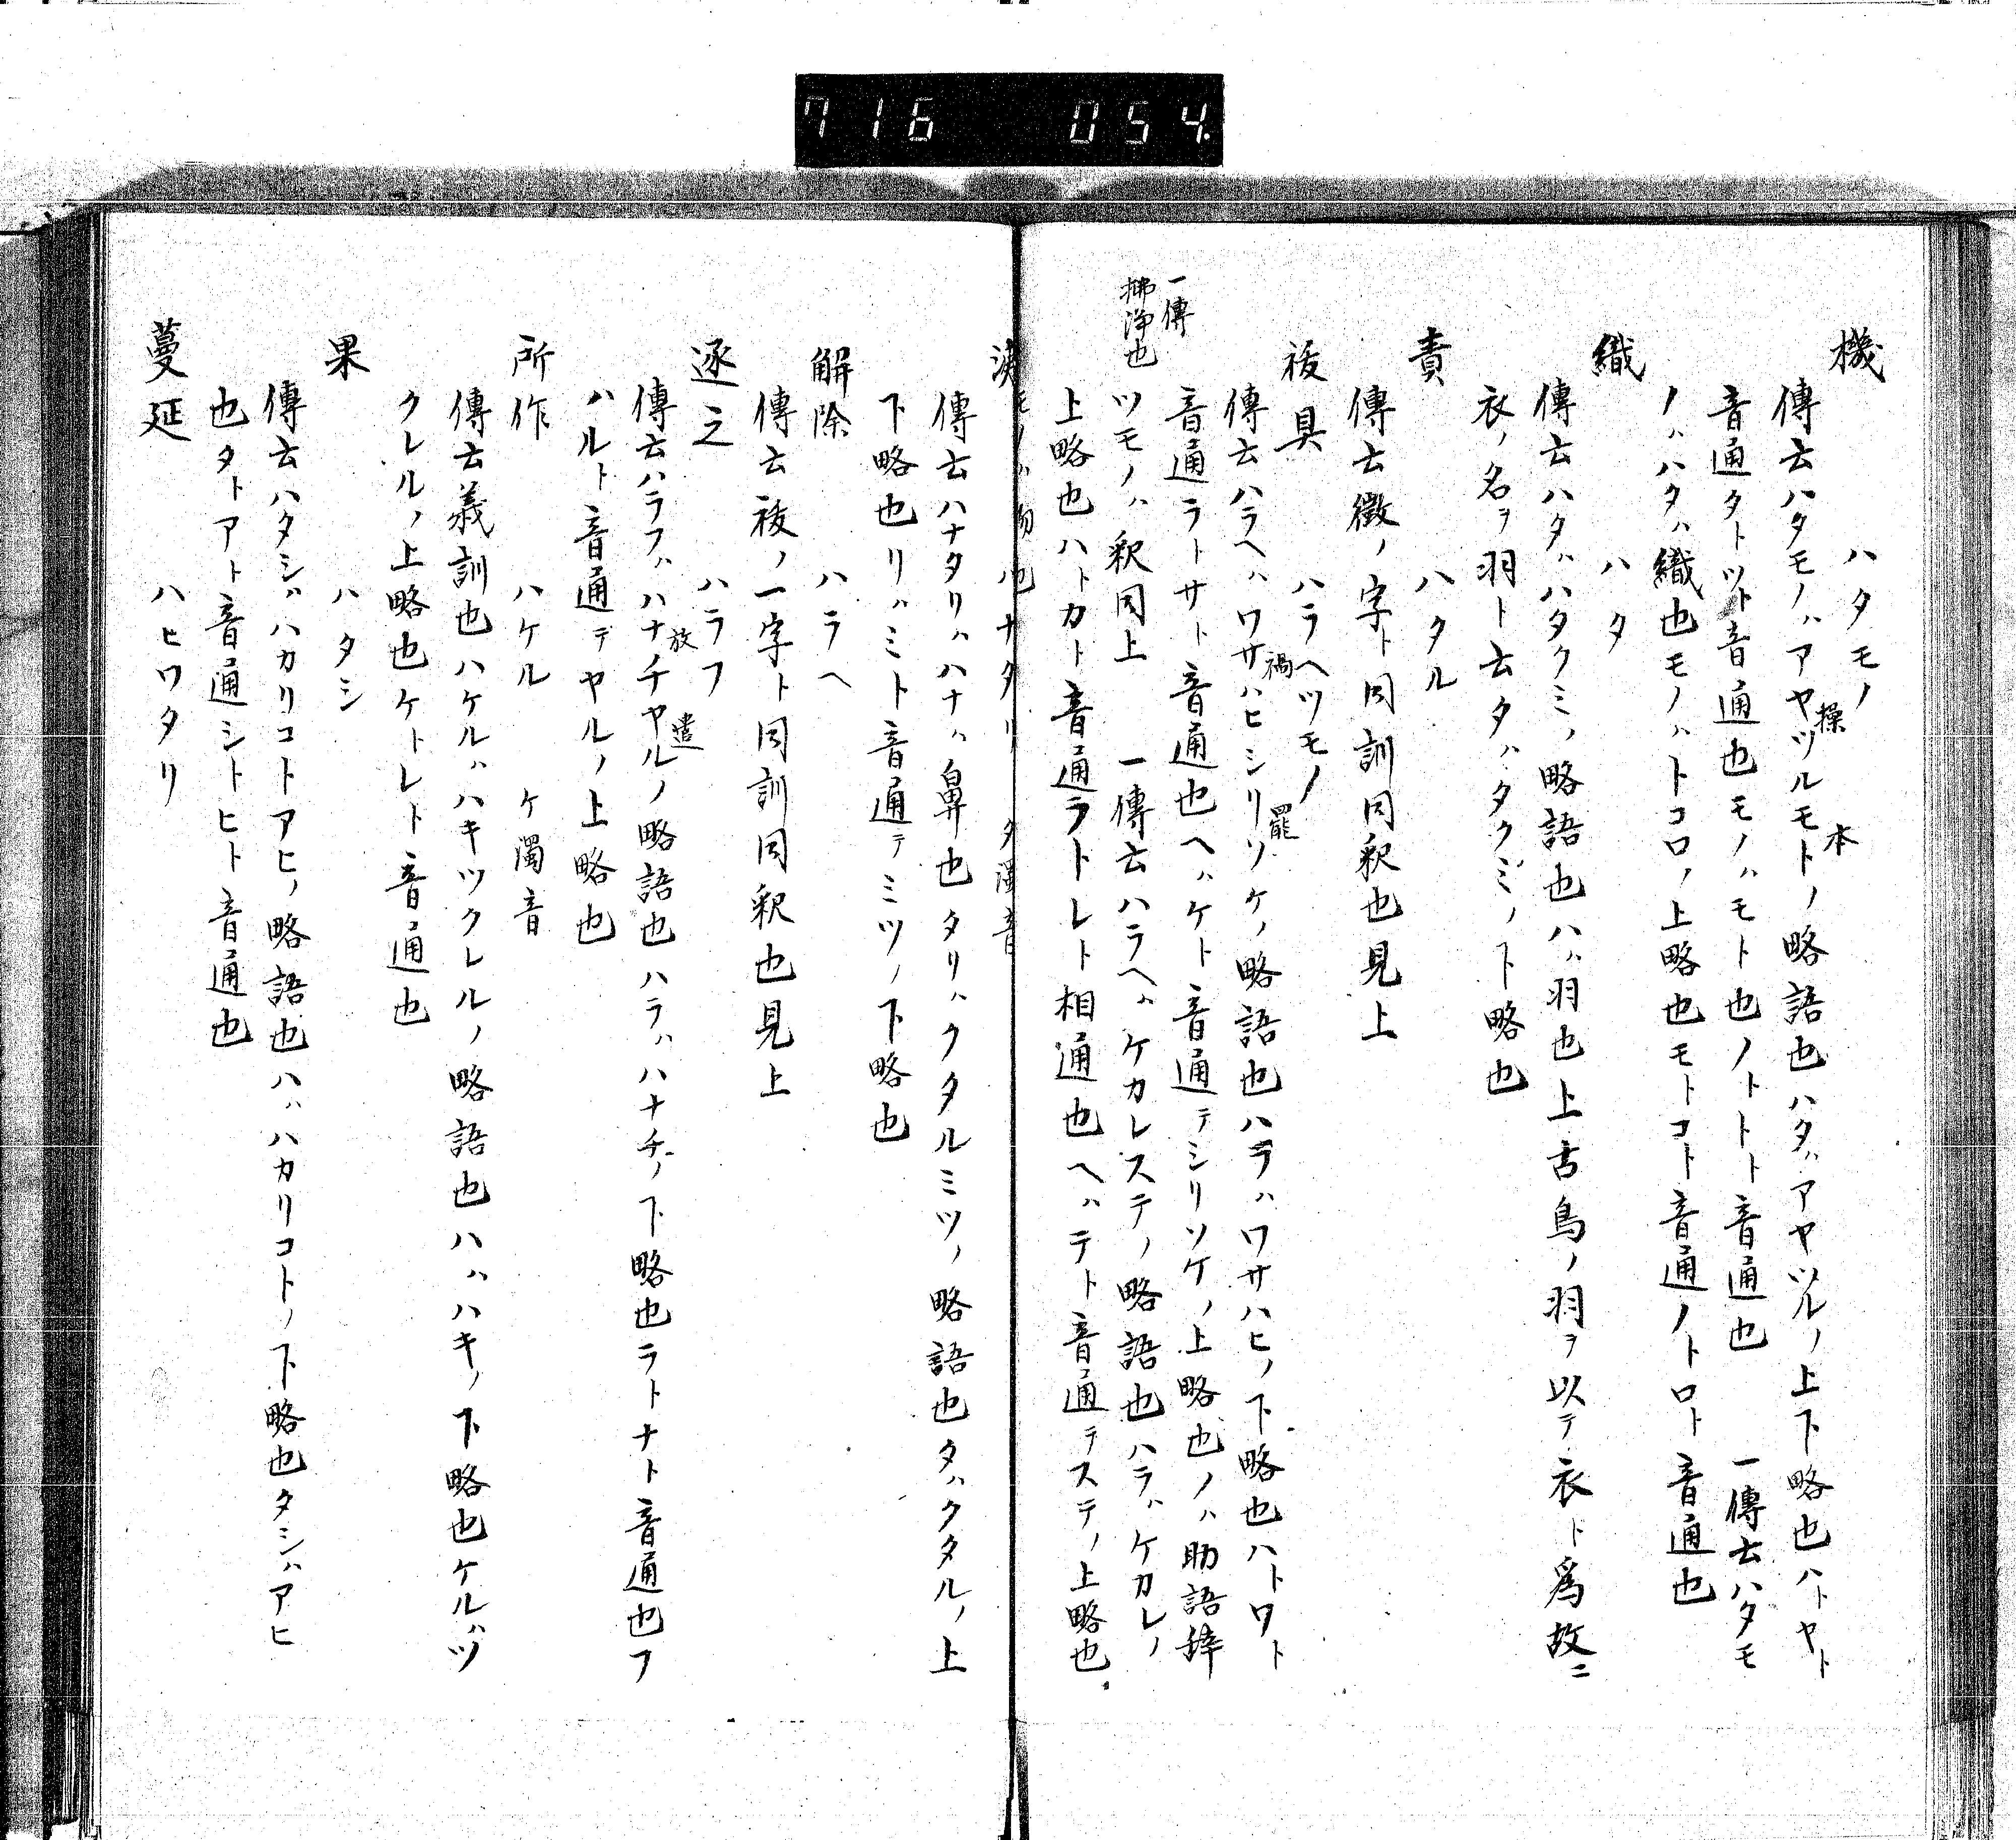 716 054
機 ハタモノ
傳云ハタモノハアヤツルモトノ略語也ハタハアヤツルノ上下略也ハトヤト
操 本
音通タトツト音通也モノハモト也ノトトト音通也 一傳云ハタモ
ノハハタハ織也モノハトコロノ上略也モトコト音通ノトロト音通也
織 ハタ
傳云ハタハハタクミノ略語也ハハ羽也上古鳥ノ羽ヲ以テ衣ト爲故ニ
衣ノ名ヲ羽ト云タハタクミノ下略也
責 ハタル
傳云徴ノ字ト同訓同釈也見上
祓具 ハラヘツモノ
傳云ハラヘハワサハヒシリソケノ略語也ハラハワサハヒノ下略也ハトワト
禍 罷
音通ラトサト音通也ヘハケト音通テシリソケノ上略也ノハ助語辞
ツモノハ釈同上 一傳云ハラヘハケカレステノ略語也ハラハケカレノ
上略也ハトカト音通ラトレト相通也ヘハテト音通テステノ上略也
一傳
拂浄也
モノハ物也
洟 ハナタリ タ濁音
傳云ハナタリハハナハ鼻也タリハクタルミツノ略語也タハクタルノ上
下略也リハミト音通テミツノ下略也
解除 ハラヘ
傳云祓ノ一字ト同訓同釈也見上
逐之 ハラフ
傳云ハラフハハナチヤルノ略語也ハラハハナチノ下略也ラトナト音通也フ
放 遣
ハルト音通テヤルノ上略也
所作 ハケル ケ濁音
傳云義訓也ハケルハハキツクレルノ略語也ハハハキノ下略也ケルハツ
クレルノ上略也ケトレト音通也
果 ハタシ
傳云ハタシハハカリコトアヒノ略語也ハハハカリコトノ下略也タシハアヒ
也タトアト音通シトヒト音通也
蔓延 ハヒワタリ